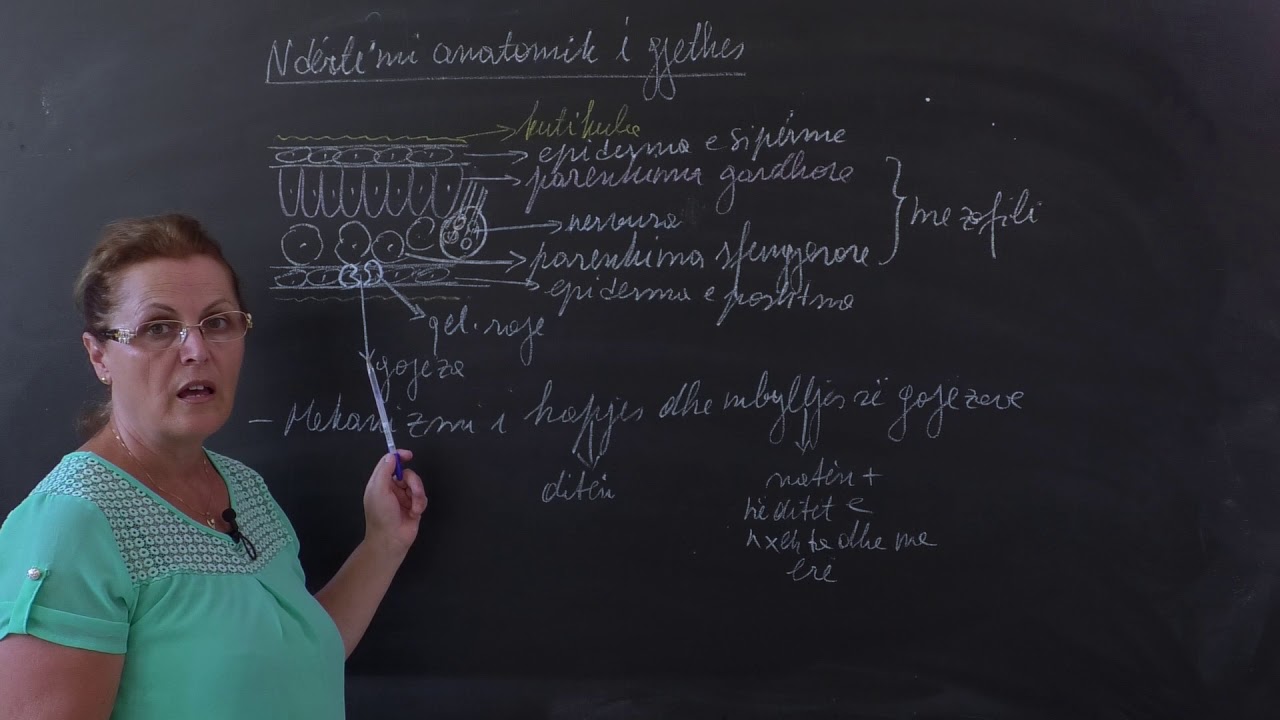 Ndërtimi anatomik i gjethes
kutikula
epiderma e sipërme
parenkima gardhore
nervura
mezofili
parenkima sfungjerore
epiderma e poshtme
qel. roje
gojëza
- Mekanizmi i hapjes dhe mbylljes së gojëzave
ditën
natën +
në ditët e
nxehta dhe me
erë